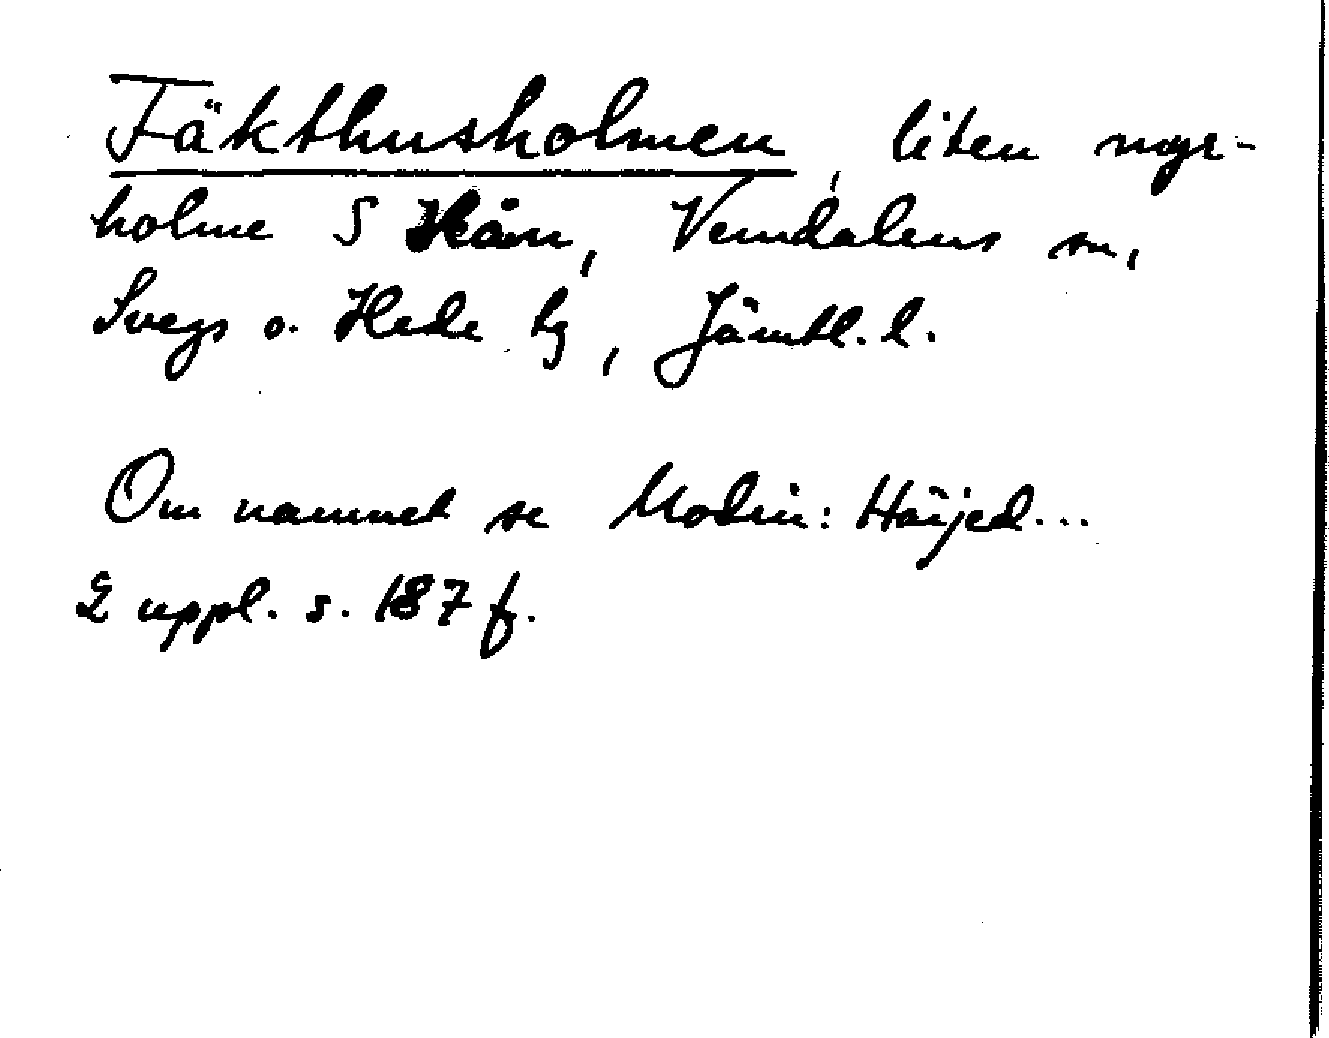 Fäkthusholmen, liten myr-
holme S Håen, Vemdalens sn,
Svegs o. Hede tg, Jämtl. l.
Om namnet se Modin: Härjed...
2 uppl. s. 187 f.